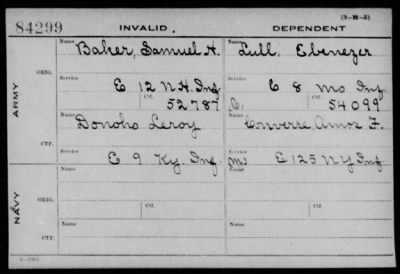 (3-H-5)
84299 INVALID. DEPENDENT
Name Baker, Samuel H. Name Lull. Ebenezer
ORIG.
Service E 12 N.H. Inf Service E 8 Mo Inf
Ctf. 52787 C. Ctf. 54099
ARMY
Name Donoho Leroy Name Converse, Amos F.
CTF.
Service E 9 Ky. Inf. Service m E 125 N Y Inf
Name Name
ORIG.
Ctf. Ctf.
NAVY
Name Name
CTF.